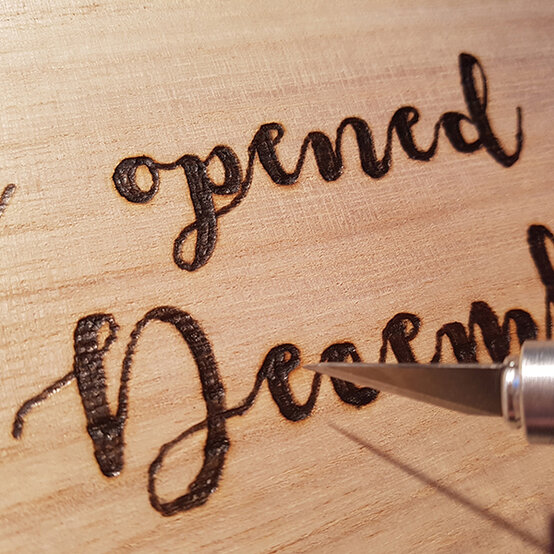 opened
Decem